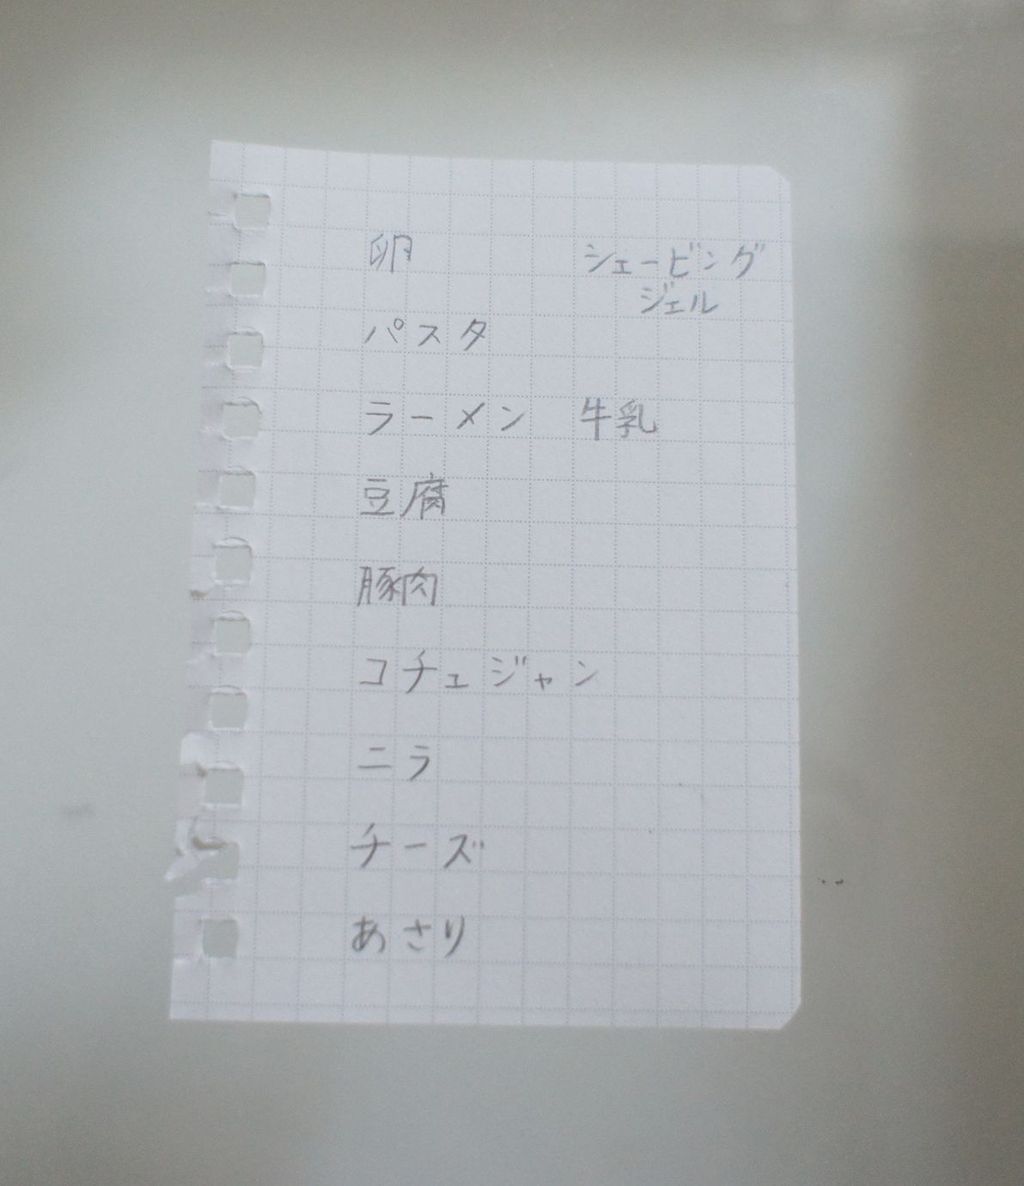 卵
パスタ
ラーメン
豆腐
豚肉
コチュジャン
ニラ
チーズ
あさり
シェービング
ジェル
牛乳